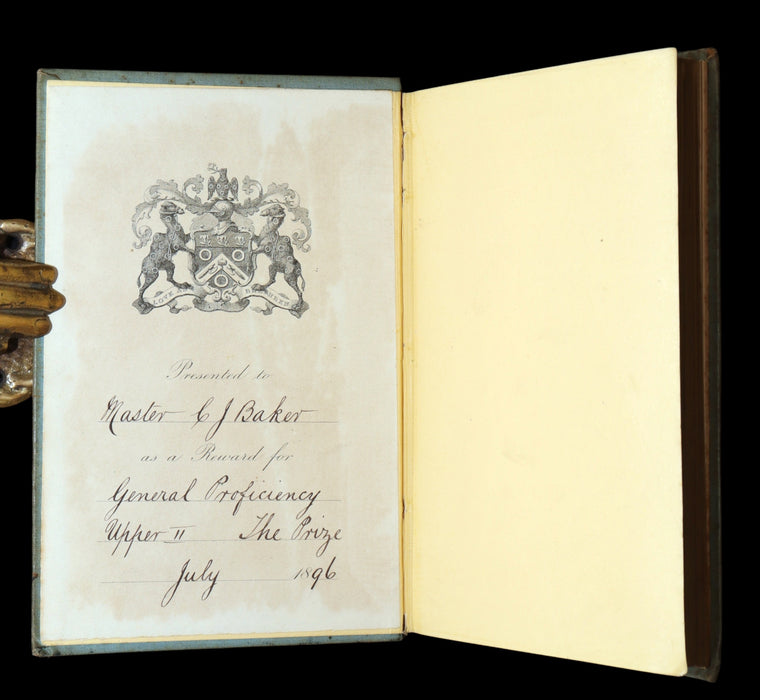 LOVE
Presented to
Master C J Baker
as a Reward for
General Proficiency
Upper II The Prize
July 1896